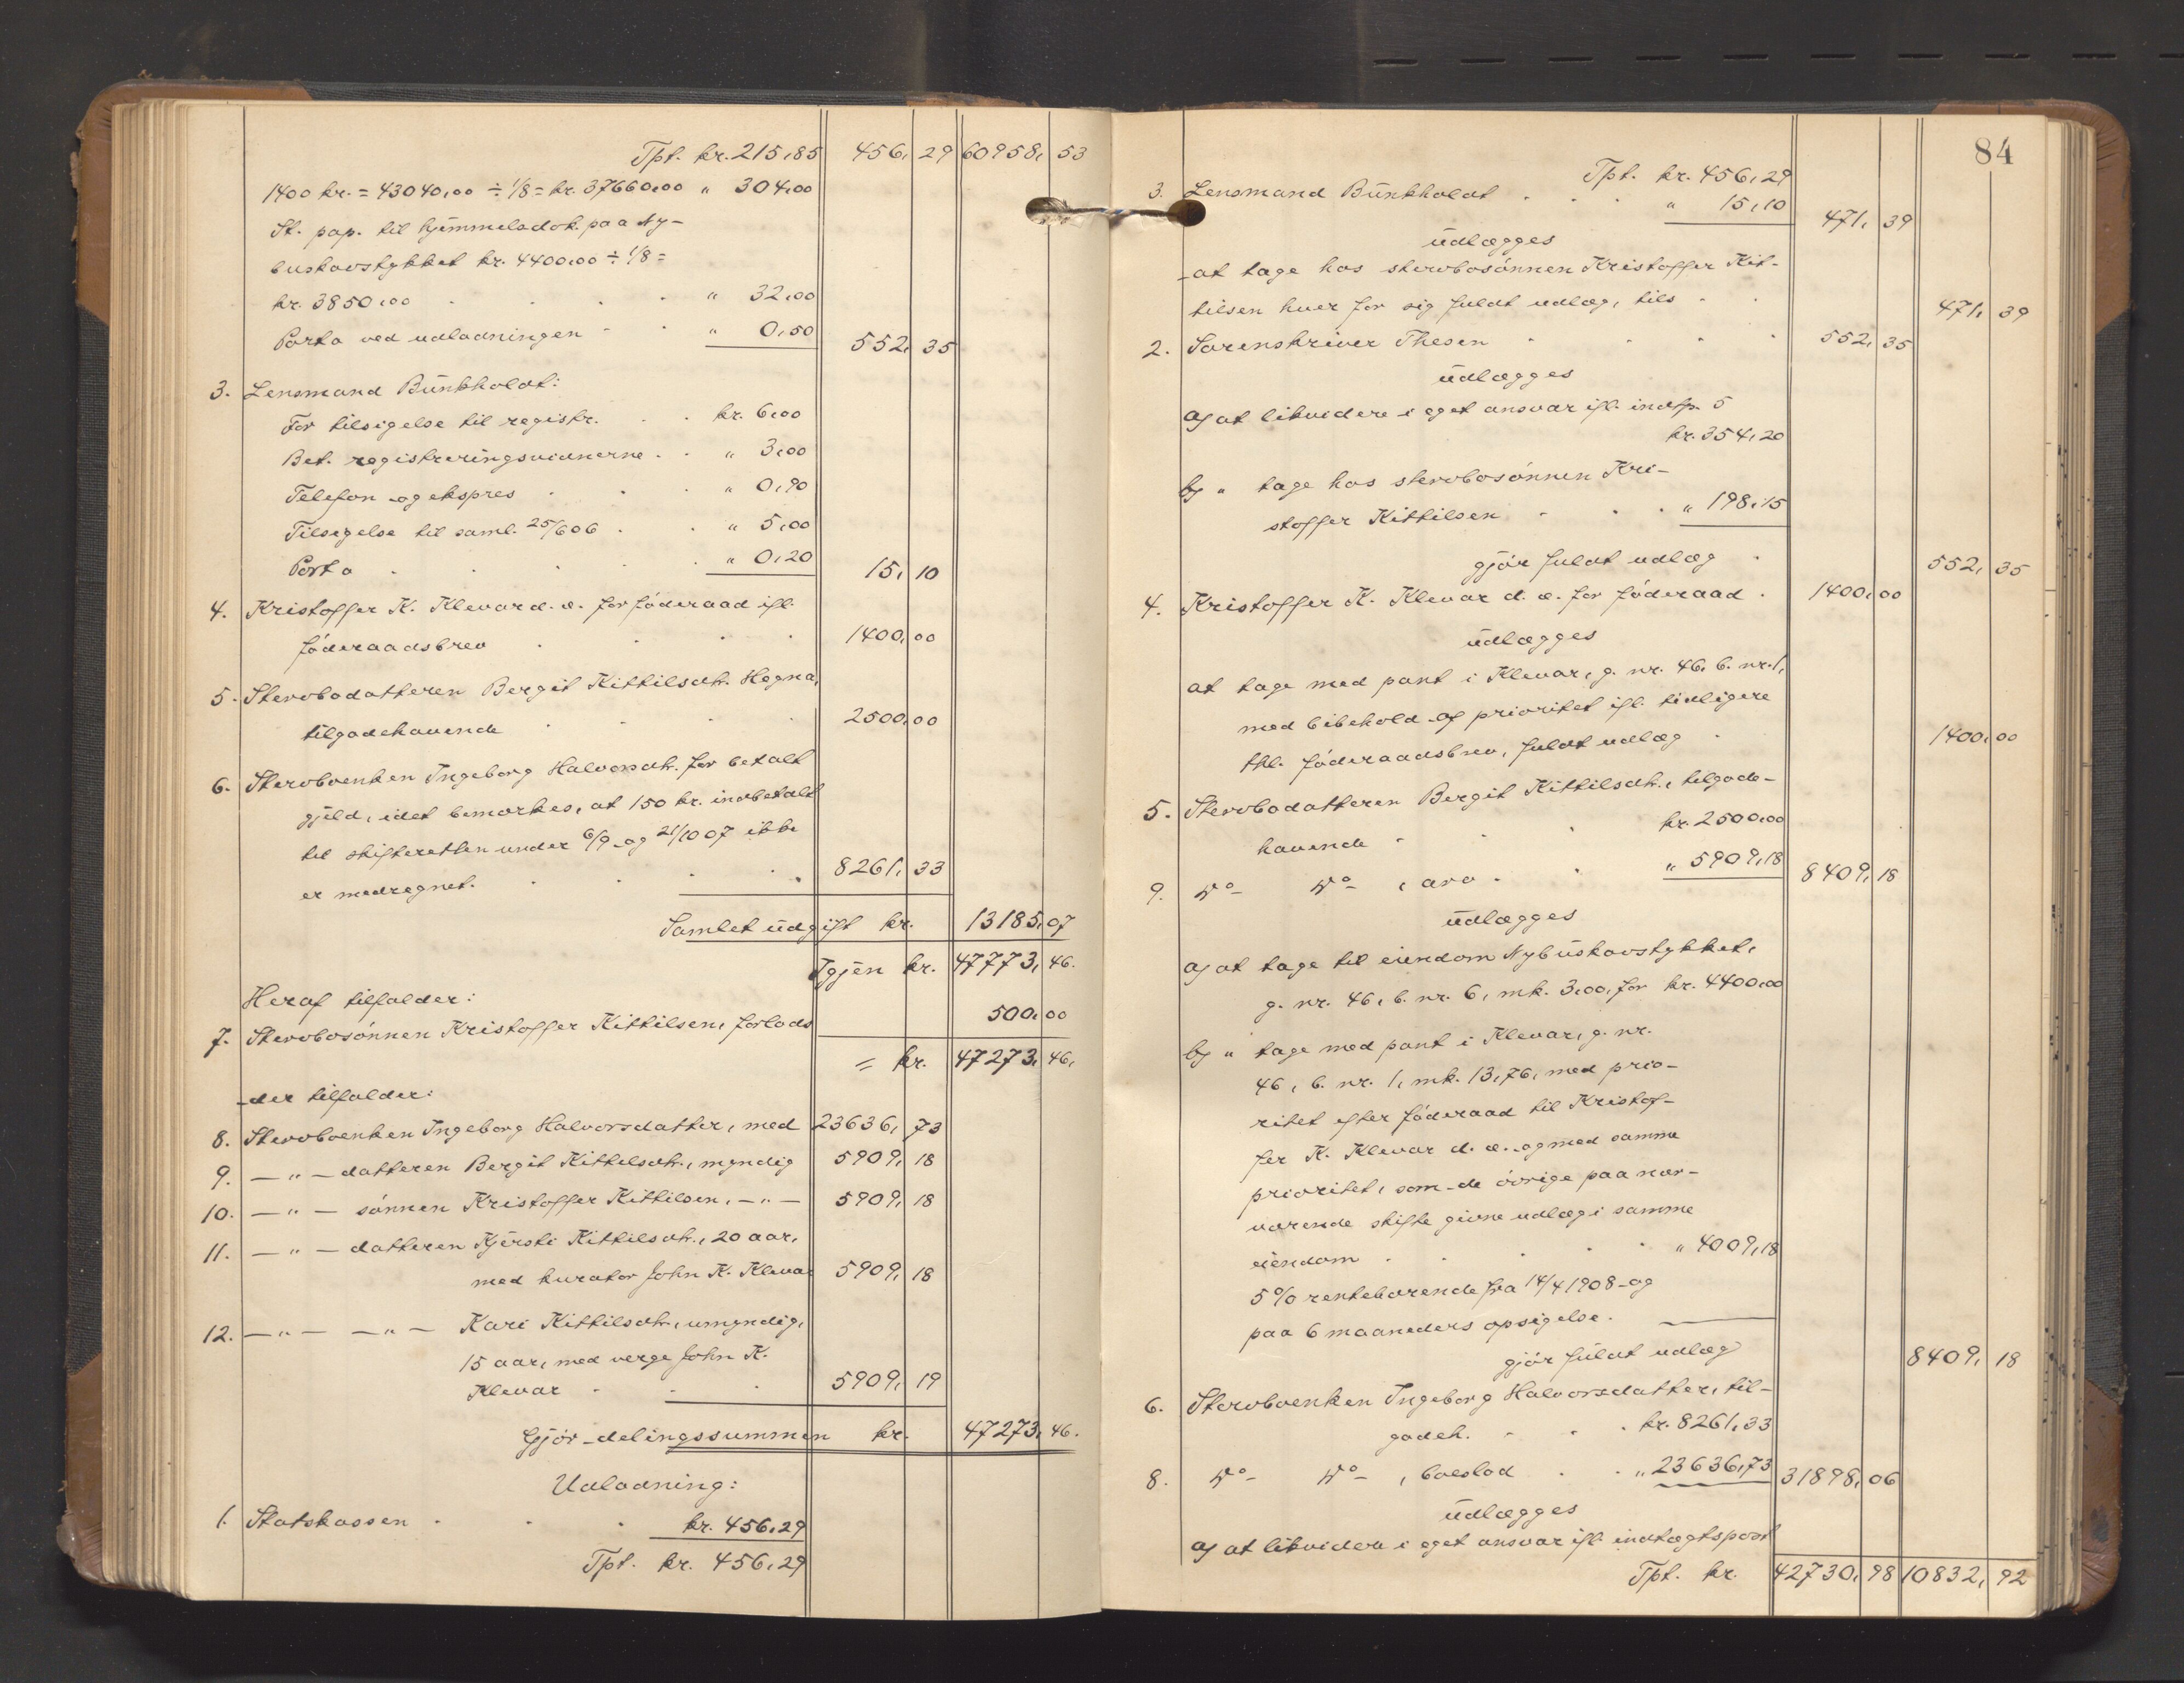 Tpt. kr. 215,85 456, 29 60958, 53
1400 kr. = 43040,00 ÷ 1/8 = kr. 37660,00 " 304,00
St. pap. til hjemmelsdok. paa Ny-
buskovstykket kr. 4400,00 ÷ 1/8 =
kr. 3850,00 . . . . " 32,00
Porto ved udlodningen . . " 0,50 552, 35
3. Lensmand Bünkholdt:
For tilsigelse til registr. . . kr. 6,00
Bet. registreringsvidnerne . . " 3,00
Telefon og ekspres . . . " 0,90
Tilsigelse til saml. 25/6 06 . . " 5,00
Porto . . . . . " 0,20 15, 10
4. Kristoffer K. Klevar d. æ. for föderaad ifl.
föderaadsbrev . . . . 1400, 00
5. Stervbodatteren Bergit Kittilsdtr. Hegna,
tilgodehavende . . . . 2500, 00
6. Stervboenken Ingeborg Halvorsdtr. for betalt
gjeld, idet bemærkes, at 150 kr. indbetalt
til skifteretten under 6/9 og 21/10 07 ikke
er medregnet. . . . . 8261, 33
Samlet üdgift kr. 13185, 07
Igjen kr. 47773, 46.
Heraf tilfalder:
7. Stervbosönnen Kristoffer Kittilsen, forlods 500, 00
= kr. 47273, 46,
der tilfalder:
8. Stervboenken Ingeborg Halvorsdatter, med 23636, 73
9. — " — datteren Bergit Kittilsdtr., myndig 5909, 18
10. — " — sönnen Kristoffer Kittilsen, — " — 5909, 18
11. — " — datteren Kjersti Kittilsdtr., 20 aar,
med kurator John K. Klevar 5909, 18
12. — " — — " — Kari Kittilsdtr., umyndig,
15 aar, med verge John K.
Klevar . . . 5909, 19
Gjör delingssummen kr. 47273, 46.
Udlodning:
1. Statskassen . . . kr. 456,29
Tpt. kr. 456,29
84
Tpt. kr. 456,29
3. Lensmand Bünkholdt . . . " 15,10 471, 39
üdlægges
at tage hos stervbosönnen Kristoffer Kit-
tilsen hver for sig fuldt udlæg, tils . . 471, 39
2. Sorenskriver Thesen . . . . 552, 35
üdlægges
a) at likvidere i eget ansvar ifl. indtp. 5
kr. 354,20
b) " tage hos stervbosönnen Kri-
stoffer Kittilsen . . . " 198,15
gjör fuldt udlæg . 552, 35
4. Kristoffer K. Klevar d. æ. for föderaad . 1400, 00
üdlægges
at tage med pant i Klevar, g. nr. 46, b. nr. 1,
med bibehold af prioritet ifl. tidligere
thl. föderaadsbrev, fuldt udlæg . 1400, 00
5. Stervbodatteren Bergit Kittilsdtr., tilgode-
havende . . . kr. 2500,00
9. Do Do , arv . . " 5909,18 8409, 18
üdlægges
a) at tage til eiendom Nybüskovstykket,
g. nr. 46, b. nr. 6, mk. 3,00, for kr. 4400,00
b) " tage med pant i Klevar, g. nr.
46, b. nr. 1, mk. 13,76, med prio-
ritet efter föderaad til Kristof-
fer K. Klevar d. æ. og med samme
prioritet, som de övrige paa nær-
værende skifte givne udlæg i samme
eiendom . . . . " 4009,18
5 % rentebærende fra 14/4 1908 og
paa 6 maaneders opsigelse. —
gjör füldt udlæg 8409, 18
6. Stervboenken Ingeborg Halvorsdatter, til-
godeh. . . . kr. 8261,33
8. Do Do , boeslod . . " 23636,73 31898, 06
üdlægges
a) at likvidere i eget ansvar ifl. indtægtspost
Tpt. kr. 42730, 98 10832, 92